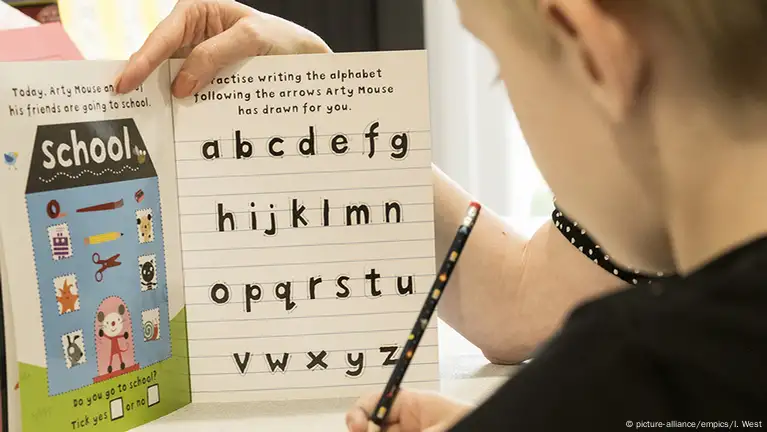 Today, Arty Mouse
his friends are going to school.
school
Do you go to school?
Tick yes or no
writing the alphabet
following the arrows Arty Mouse
has drawn for you.
a b c d e f g
h i j k l m n
o p q r s t u
v w x y z
© picture-alliance/empics/I. West